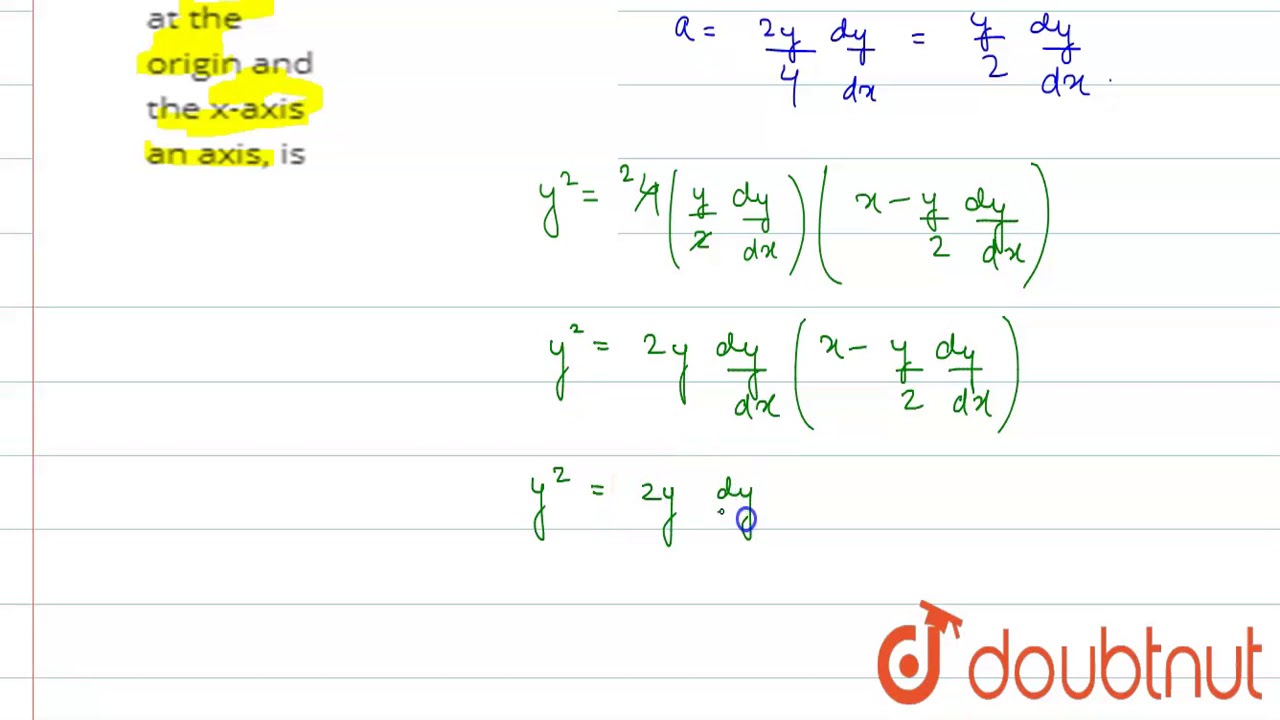 at the
origin and
the x-axis
an axis, is
a = 2y/4 dy/dx = y/2 dy/dx .
y² = ²4 (y/2 dy/dx) (x - y/2 dy/dx)
y² = 2y dy/dx (x - y/2 dy/dx)
y² = 2y dy
doubtnut